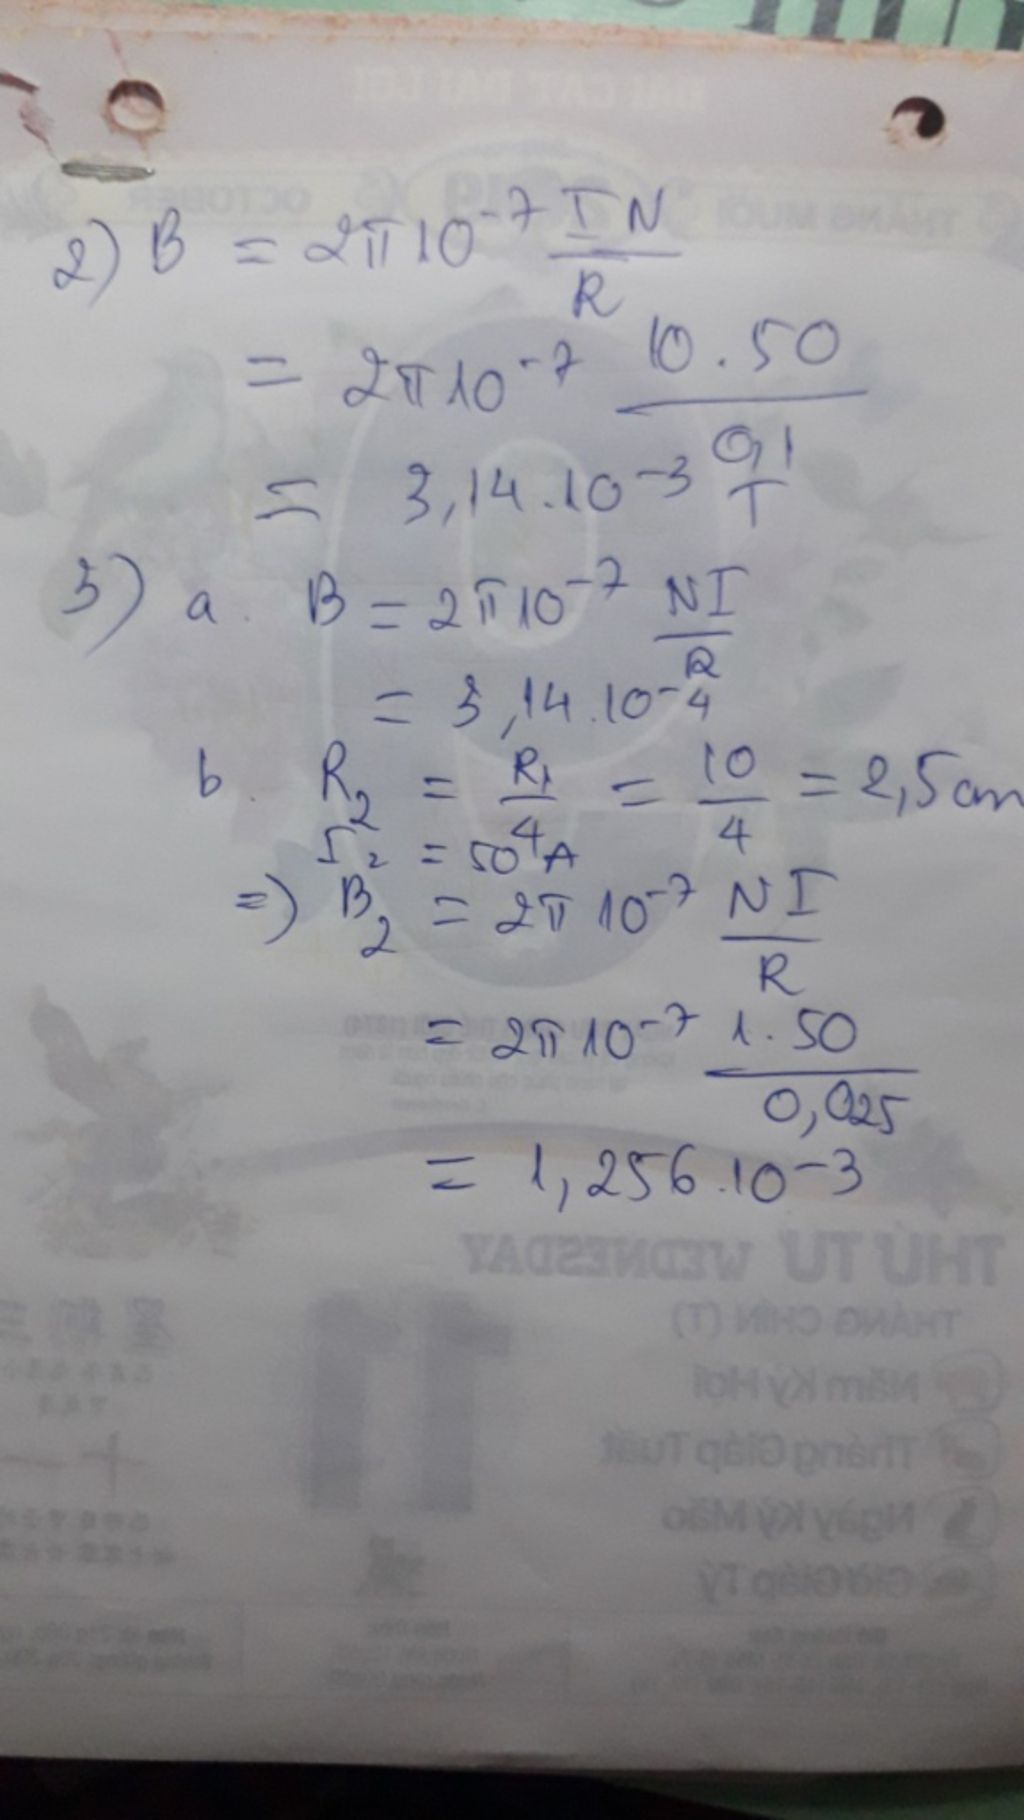 2) B = 2π10^-7 IN/R
= 2π10^-7 10.50/0,1
= 3,14.10^-3 T
3) a. B = 2π10^-7 NI/R
= 3,14.10^-4
b. R₂ = R₁/4 = 10/4 = 2,5cm
I₂ = 50A
=) B₂ = 2π10^-7 NI/R
= 2π10^-7 1.50/0,025
= 1,256.10^-3
THỨ TƯ WEDNESDAY
11
THÁNG CHÍN (T)
Năm Kỷ Hợi
Tháng Giáp Tuất
Ngày Kỷ Mão
Giờ Giáp Tý